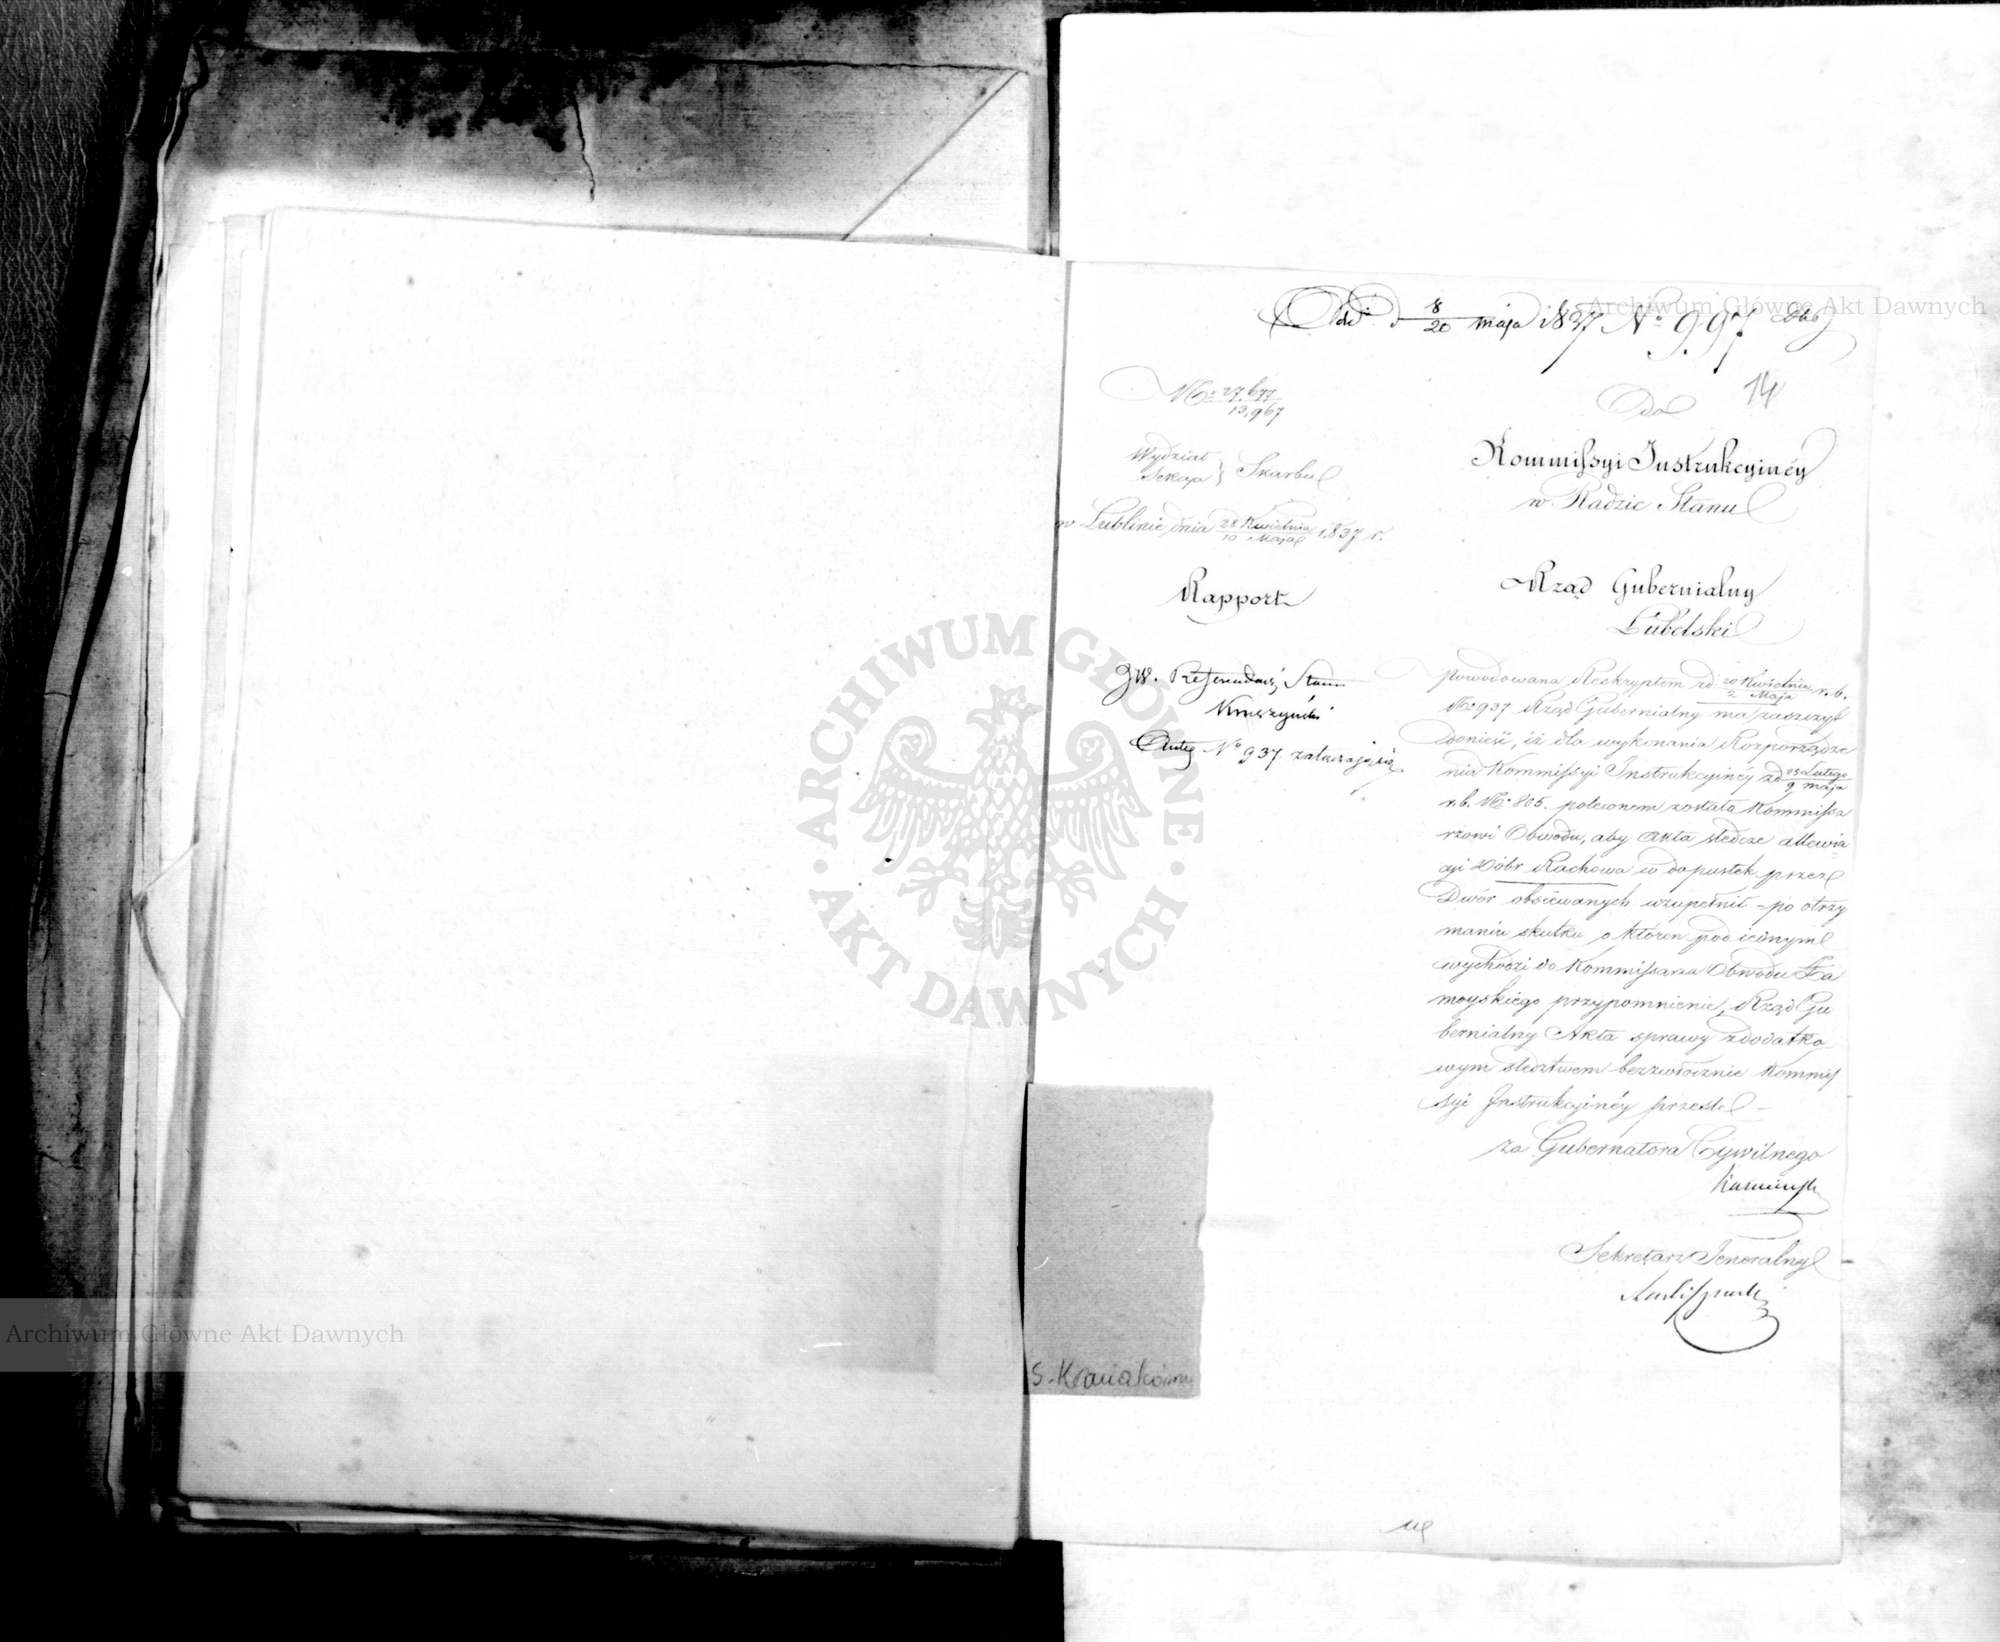 d. 8/20 maja 1837 No 997
14
No 27,677/13,967
Wydział
Sekcya } Skarbu
w Lublinie dnia 28 Kwietnia/10 Maja 1837 r.
Rapport
JW. Referendarz Stanu
No 937 załączają się
Do
Kommissyi Instrukcyinéy
w Radzie Stanu
Rząd Gubernialny
Lubelski
powodowana Reskryptem zd. 20 Kwietnia/2 Maja r. b.
No 937 Rząd Gubernialny ma zaszczyt
donieść, iż dla wykonania Rozporządze
nia Kommissyi Instrukcyinéy zd 25 Lutego/9 maja
r. b. No 805. polecenem została Kommissa
rzowi Obwodu, aby Akta śledcze
cyi Dóbr Rachowa w dopustek przez
Dwór obsiewanych uzupełnił – po otrzy
maniu skutku o któren pod iednym
wychodzi do Kommissarza Obwodu Za
moyskiego przypomnienie, Rząd Gu
bernialny Akta sprawy zdodatko
wym śledztwem bezzwłocznie Kommis
syi Instrukcyinéy prześle –
za Gubernatora Cywilnego
Sekretarz Jeneralny
Archiwum Główne Akt Dawnych
Archiwum Główne Akt Dawnych
ARCHIWUM GŁÓWNE
· AKT DAWNYCH ·